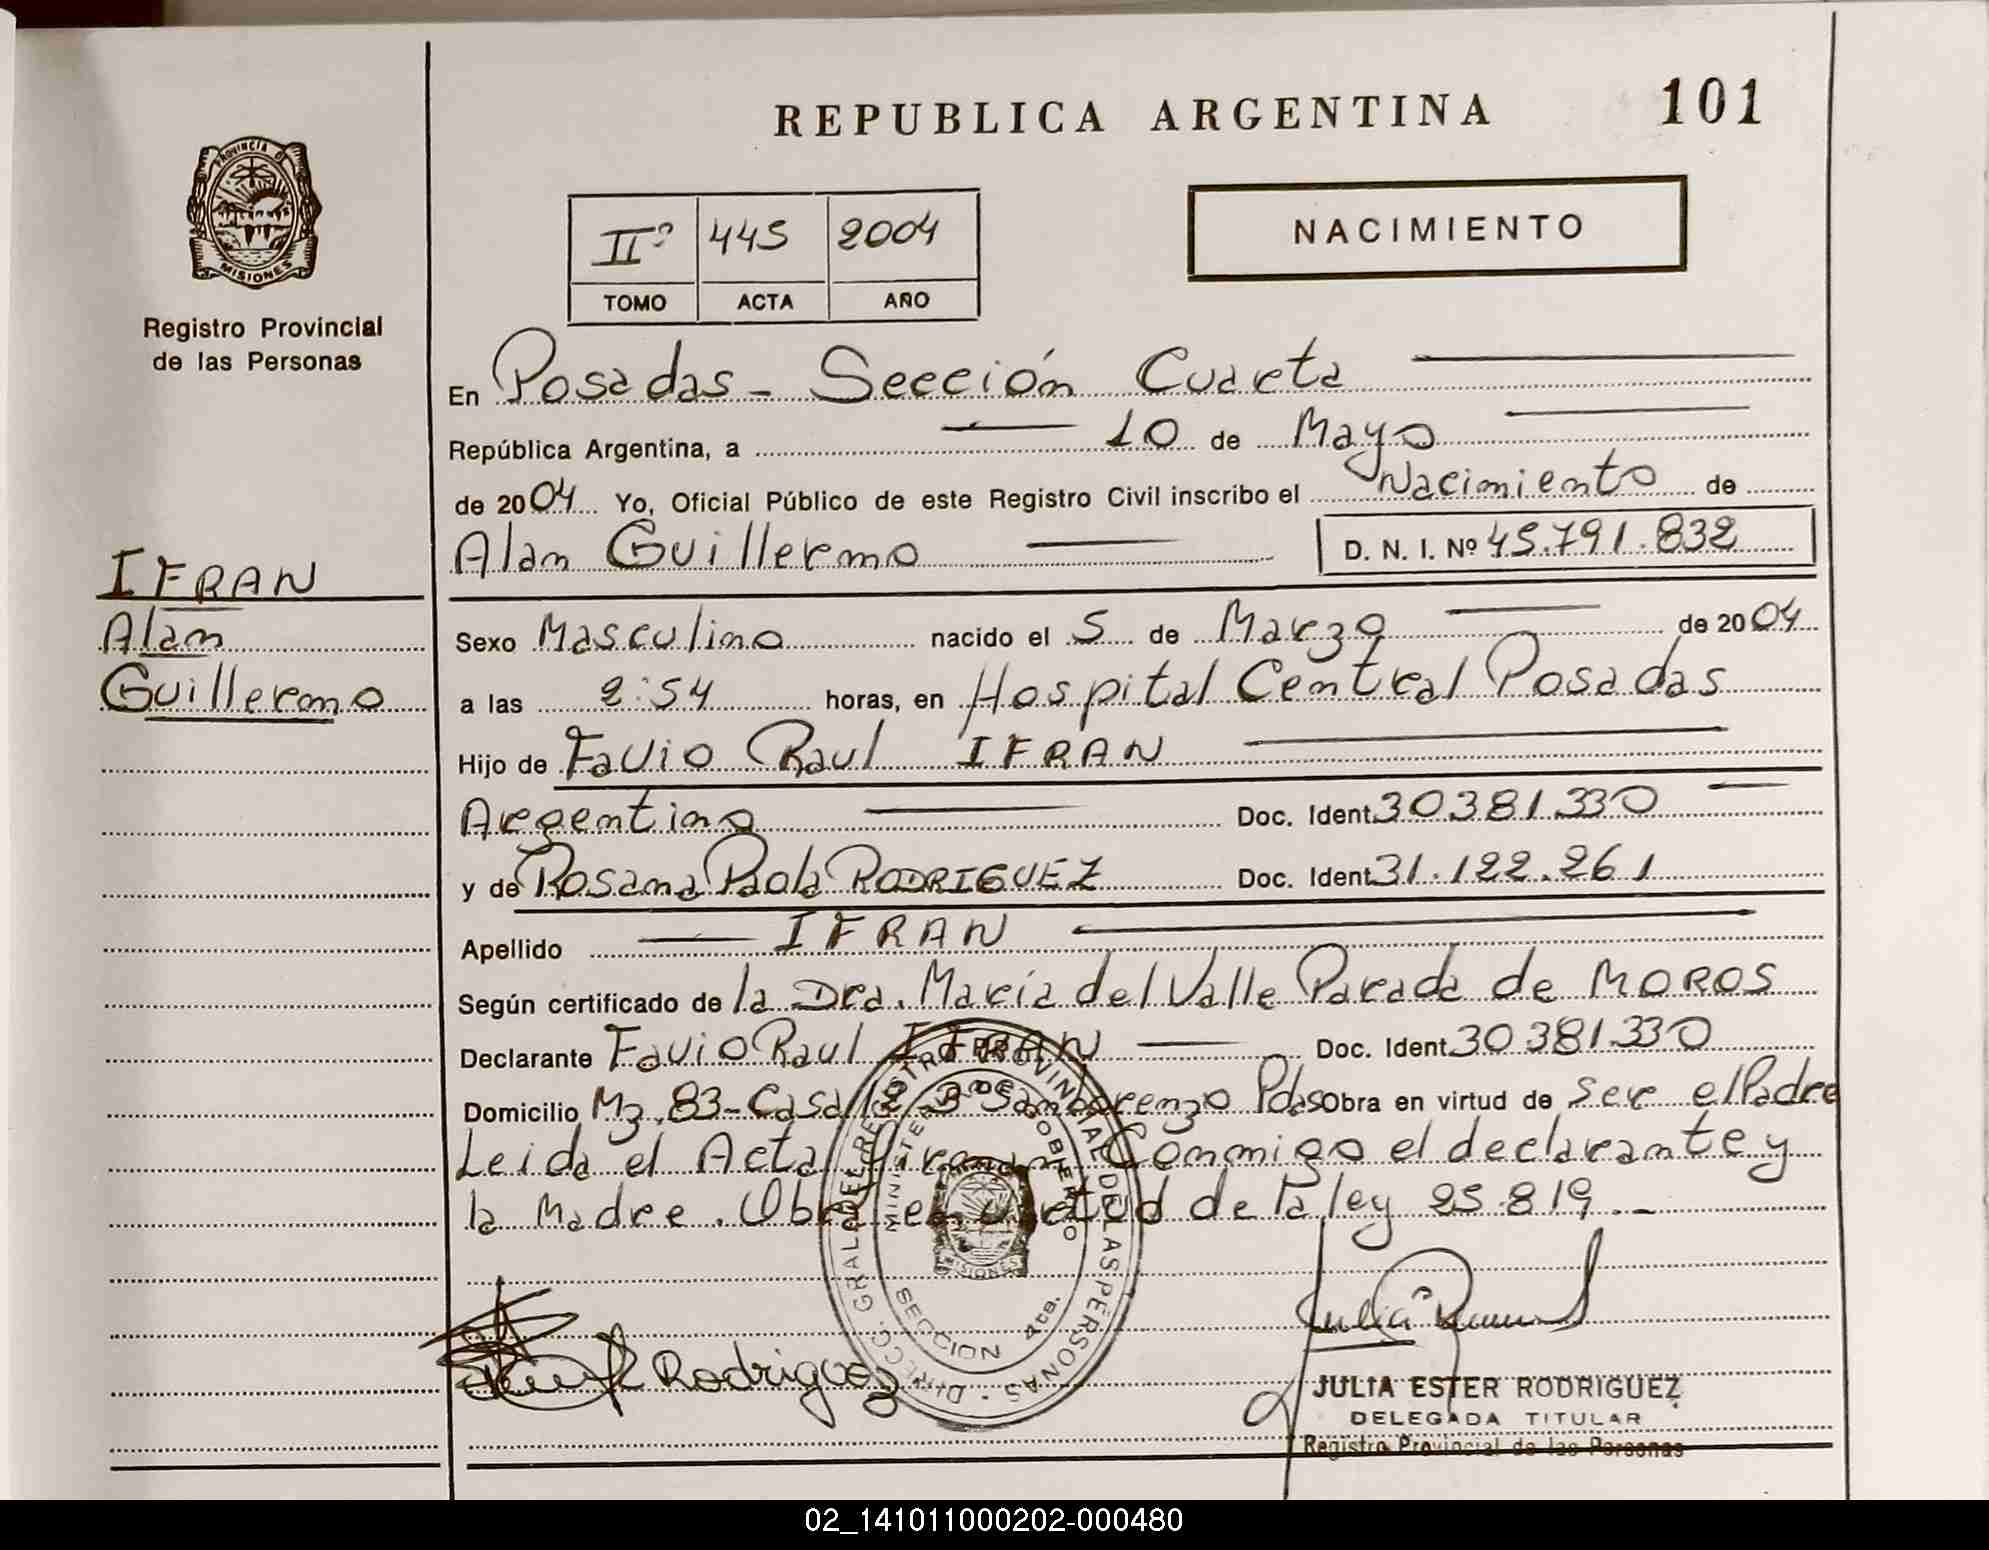 REPUBLICA ARGENTINA 101
PROVINCIA DE
MISIONES
Registro Provincial
de las Personas
IIº 445 2004
TOMO ACTA AÑO
NACIMIENTO
En Posadas - Sección Cuarta
República Argentina, a 10 de Mayo
de 2004 Yo, Oficial Público de este Registro Civil inscribo el Nacimiento de
Alan Guillermo D. N. I. Nº 45.791.832
IFRAN
Alan
Guillermo
Sexo Masculino nacido el 5 de Marzo de 2004
a las 2:54 horas, en Hospital Central Posadas
Hijo de Favio Raul IFRAN
Argentino Doc. Ident 30.381.330
y de Rosana Paola RODRIGUEZ Doc. Ident 31.122.261
Apellido IFRAN
Según certificado de la Dra. María del Valle Parada de MOROS
Declarante Favio Raul IFRAN Doc. Ident 30.381.330
Domicilio Mz. 83 - Casa 12 Bº San Lorenzo Pdas obra en virtud de ser el Padre
Leida el Acta Firman Conmigo el declarante y
la Madre. Obra en virtud de la ley 25.819.-
DIRECC. GRAL. DEL REGISTRO PROVINCIAL DE LAS PERSONAS
MINISTERIO DE GOBIERNO
MISIONES
SECCION 4ta.
Rodriguez
JULIA ESTER RODRIGUEZ
DELEGADA TITULAR
Registro Provincial de las Personas
02_141011000202-000480